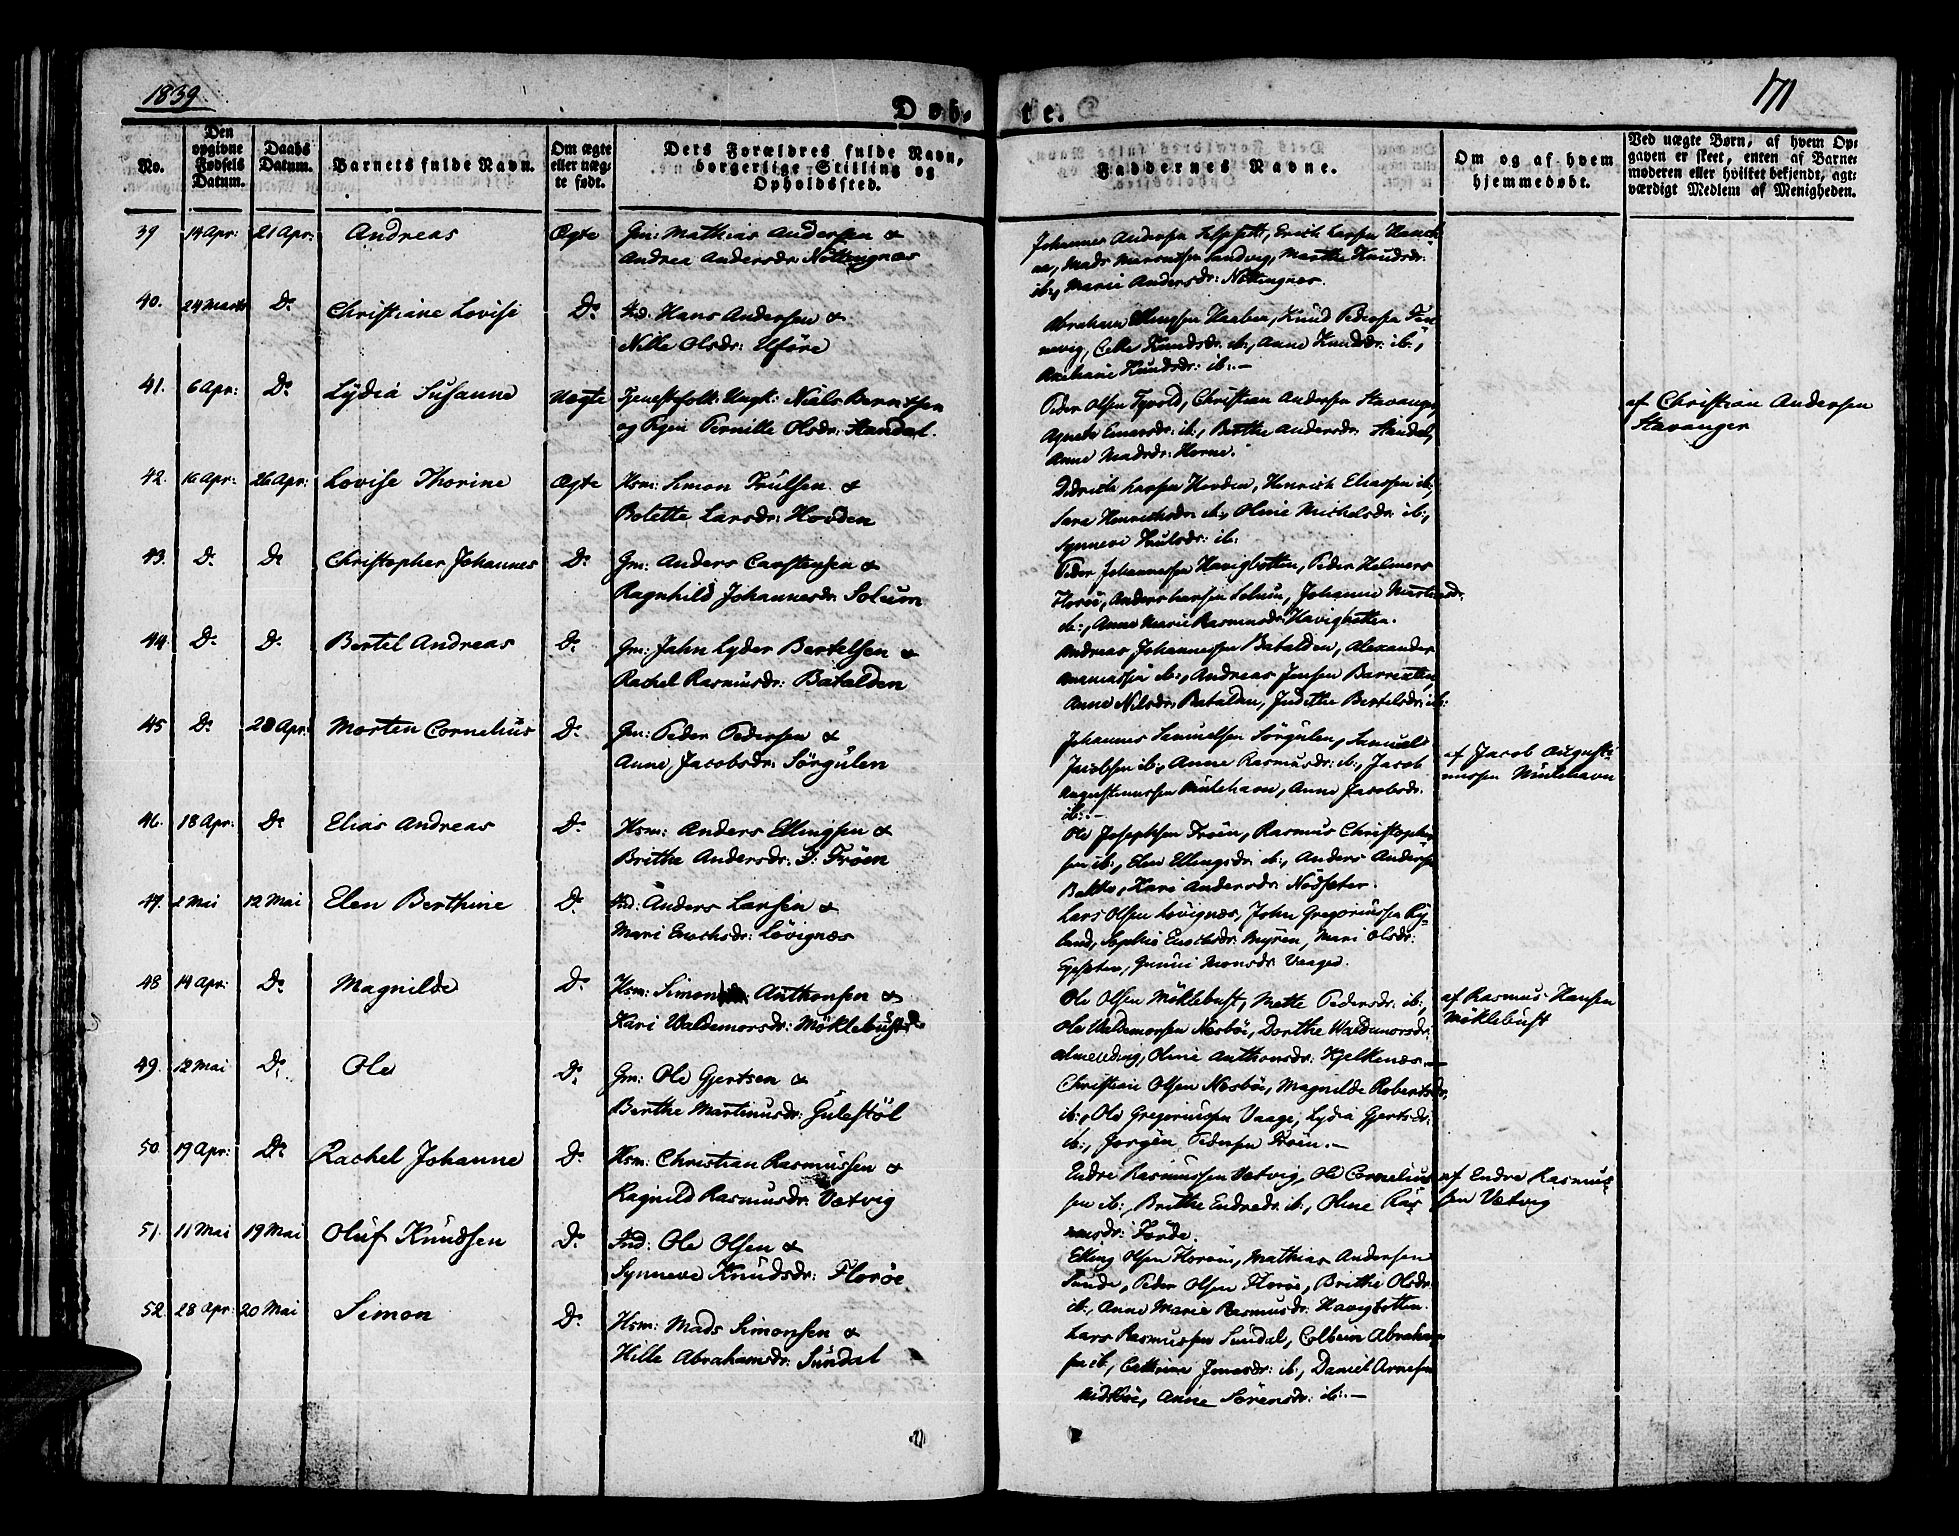 1839
171
Døb-
te.
No.
Den opgivne Fødsels Datum.
Daabs Datum.
Barnets fulde Navn.
Om ægte eller uæg-te født.
Dets Forældres fulde Navn, borgerlige Stilling og Opholdssted.
Faddernes Navne.
Om og af hvem hjemmedøbt.
Ved uægte Børn, af hvem Op-
gaven er skeet, enten af Barne-
moderen eller hvilket bekjendt, agt-
værdigt Medlem af Menigheden.
39 14 Apr: 21 Apr: Andreas Ægte Gm: Mathias Andersen &
Andrea Andersdr: Nekkingnæs
Johannes Andersen, Erich Larsen
Mads Sandvig, Marthe Knudsdr:
ib:, Marie Andersdr: Nekkingnæs.
40. 24 Marts D: Christiane Lovise D: Std: Hans Andersen &
Nille Olsdr: Ulføre
Abraham Ellingsen Haaben, Knud Pedersen Fen-
nevig, Knudsdr: ib:, Anne Knudsdr: ib:,
Knudsdr: ib:—
41. 6 Apr: D: Lydia Susanne Uægte Tjenestefolk: Ungk: Niels Berntsen
og Pigen Pernille Olsdr: Standal.
Peder Olsen, Christian Andersen Stavanger,
Agnete ib:, Berthe Andersdr: Standal,
Anne Madsdr: Horne.
af Christian Andersen
Stavanger
42. 16 Apr: 26 Apr: Lovise Thorine Ægte Hsm: Simon Trulsen &
Bolette Larsdr: Hovden
Didrich Larsen Hovden, Henrich Eliassen ib:,
Sara Henrichsdr: ib:, Oline Michelsdr: ib:,
Synnevi Trulsdr: ib:
43. D: D: Christopher Johannes D: Gm: Anders Carstensen &
Ragnhild Johannesdr: Solum
Peder Johannessen Havigbotten, Peder Helmers
Florøe, Anders Larsen Solum, Johanne
ib:, Anne Marie Rasmusdr: Havigbotten.
44. D: D: Bertel Andreas D: Gm: Jahn Lyder Bertelsen &
Rachel Rasmusdr: Batalden
Andreas Johannessen Batalden, Alexander
Ananiassen ib:, Andreas Jensen
Anne Nilsdr: Batalden, Judithe Bertelsdr: ib:
45 D: 28 Apr: Morten Cornelius D: Gm: Peder Pedersen &
Anne Jacobsdr: Sørgulen
Johannes Samuelsen Sørgulen, Samuel
Jacobsen ib:, Anne Rasmusdr: ib:, Jacob
Augustinussen Mulehavn, Anne Jacobsdr:
ib:—
af Jacob Augusti-
nussen Mulehavn
46. 18 Apr: D: Elias Andreas D: Hsm: Anders Ellingsen &
Brithe Andersdr: Frøen
Ole Josephsen Frøen, Rasmus Christopher-
sen ib:, Elen Ellingsdr: ib:, Anders Andersen
Bakke, Kari Andersdr: Nødseter.
47. 2 Mai 12 Mai Elen Berthine D: Std: Anders Larsen &
Mari Enochsdr: Løvignæs
Lars Olsen Løvignæs, John Gregoriussen Ry-
land, Sophie Enochsdr: Myren, Mari Olsdr:
Gunni Monsdr: Vaage.
48 14 Apr: D: Magnilde D: Hsm: Simon Anthonsen &
Kari Valdemorsdr: Møklebust
Ole Olsen Møklebust, Mette Pedersdr: ib:,
Ole Valdemorsen Nesbøe, Dorthe Waldemorsdr:
Almending, Oline Anthonsdr: Hjelkenæs.—
af Rasmus Hansen
Møklebust
49. 12 Mai D: Ole D: Gm: Ole Gjertsen &
Berthe Martinusdr: Gulestøl
Christian Olsen Nesbøe, Magnilde Robertsdr:
ib:, Ole Gregoriussen Vaage, Lydia Gjertsdr:
ib:, Jørgen Pedersen Frøen.—
50. 19 Apr: D: Rachel Johanne D: Hsm: Christian Rasmussen &
Ragnild Rasmusdr: Vætvig
Endre Rasmussen Vætvig, Ole Cornelius-
sen ib:, Brithe Endredr: ib:, Oline Ras-
musdr: Førde.
af Endre Rasmus-
sen Vætvig
51. 11 Mai 19 Mai Oluf Knudsen D: Ind: Ole Olsen &
Synneve Knudsdr: Florøe
Elling Olsen Florøe, Mathias Andersen
Tunde, Peder Olsen Florøe, Brithe Olsdr:
ib:, Anne Marie Rasmusdr: Havigbotten.
52. 28 Apr: 20 Mai Simon D: Hsm: Mads Simonsen &
Hille Abrahamsdr: Sundal
Lars Rasmussen Sundal, Colbein Abraham-
sen ib:, Cathrine Jonasdr: ib:, Daniel Arnesen
Midtbøe, Anne Sørensdr: ib:—